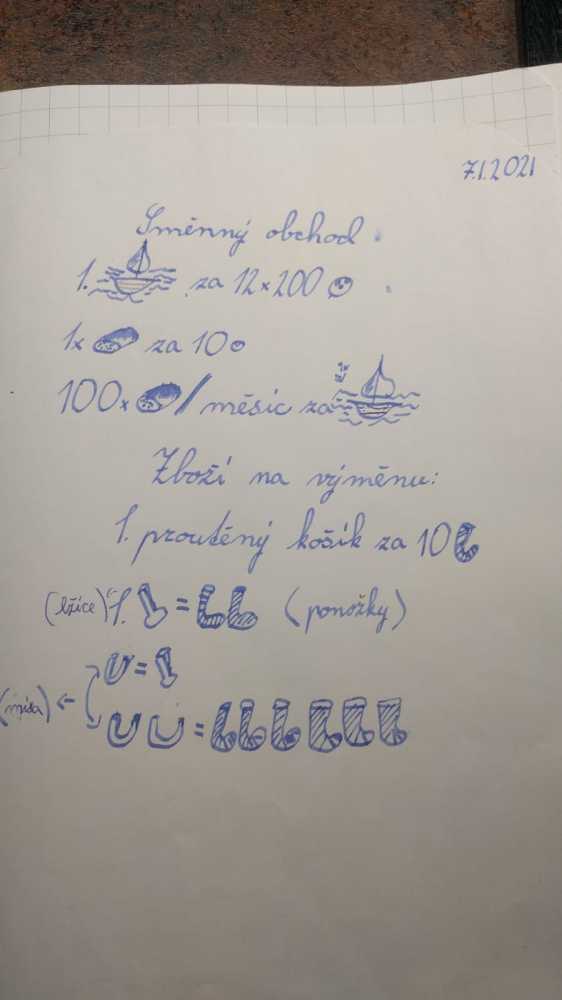 7.1.2021
Směnný obchod
1. za 12×200
1× za 10
100× / měsíc za
Zboží na výměnu:
1. proutěný košík za 10
(lžíce) 1. = (ponožky)
=
(mísa) ← =